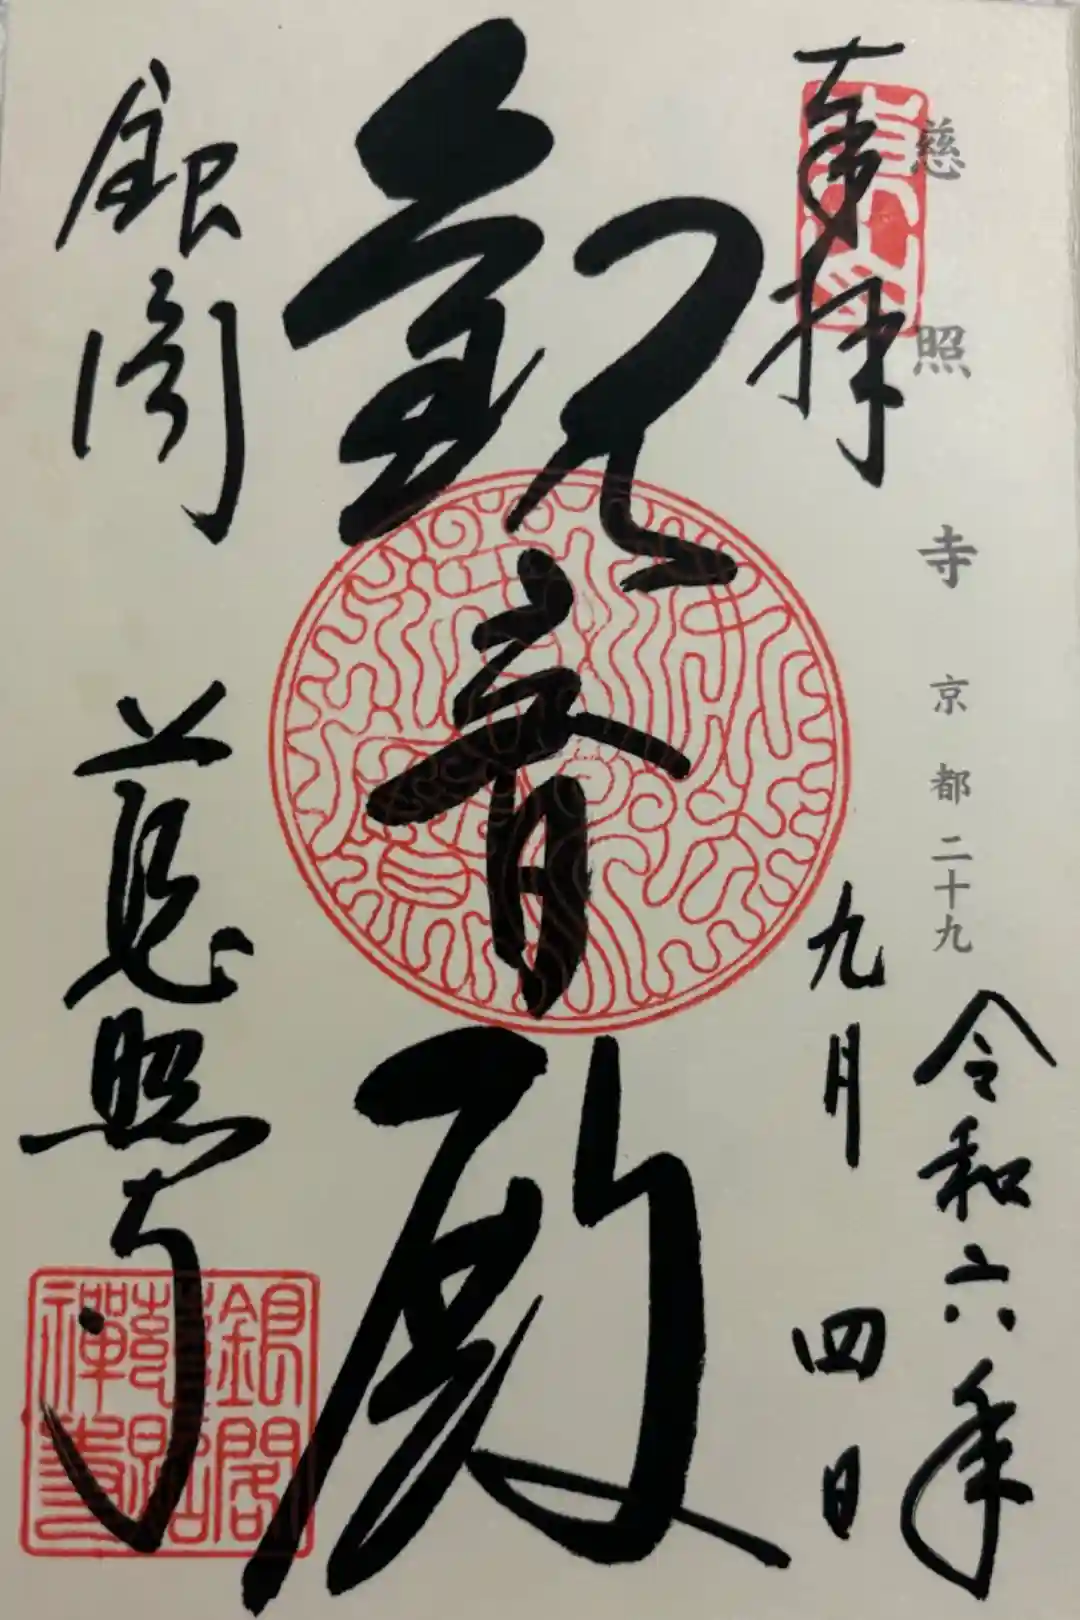 慈照寺 京都二十九
令和六年
奉拝
九月四日
観音殿
銀閣
慈照寺
銀閣
慈照
禅寺